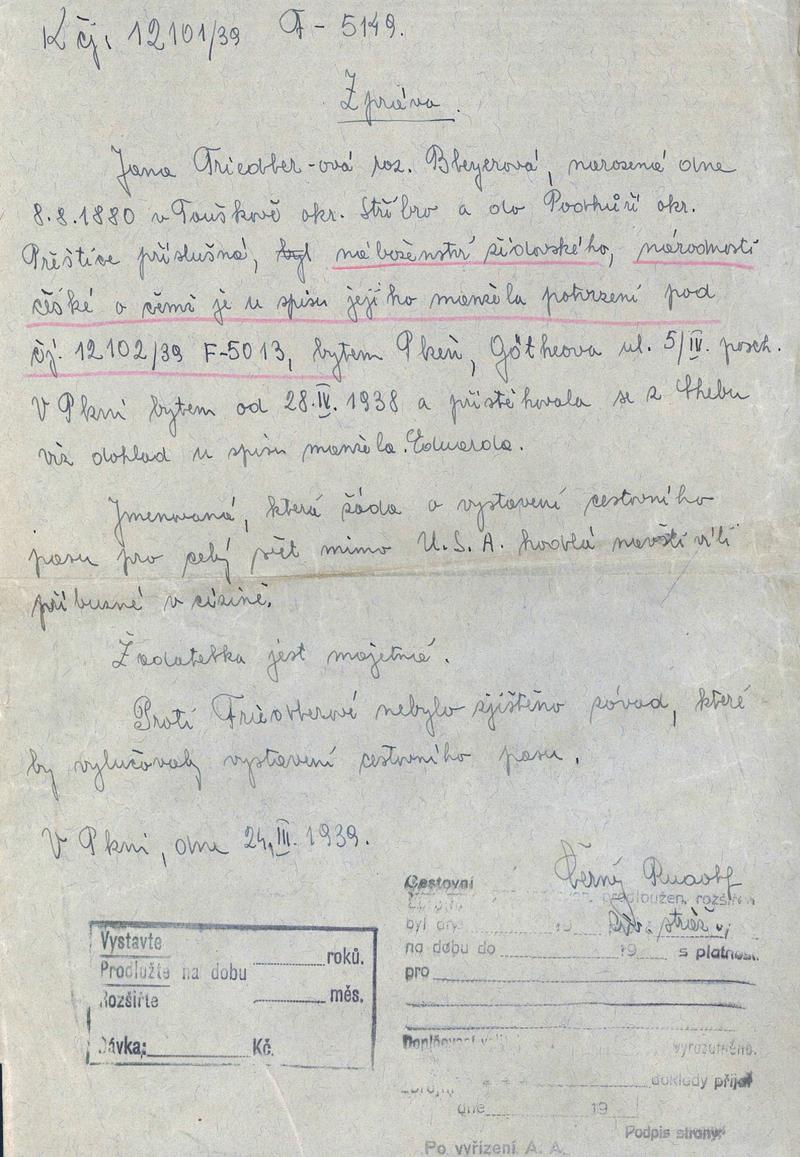 K čj. 12101/39 F - 5149.
Zpráva.
Jana Friedber-ová roz. Bbeyerová, narozená dne
8.8.1880 v Touškově okr. Stříbro a do Podhůří okr.
Přeštice příslušná, byl náboženství židovského, národnosti
české o čemž je u spisu jejího manžela potvrzení pod
čj. 12102/39 F-5013, bytem Plzeň, Götheova ul. 5/IV. posch.
V Plzni bytem od 28.IV. 1938 a přistěhovala se z Chebu
viz dohlad u spisu manžela Eduarda.
Jmenovaná, která žádá o vystavení cestovního
pasu pro celý svět mimo U.S.A. hodlá navštíviti
příbuzné v cizině.
Žadatelka jest majetná.
Proti Friedberové nebylo zjištěno závad, které
by vylučovaly vystavení cestovního pasu.
V Plzni, dne 24.III. 1939.
Černý Rudolf
Cestovní
predloužen, rozšířen
byl dne 19 stráž.
na dobu do 19 s platnos.
pro
Vystavte
Prodlužte na dobu roků.
Rozšiřte měs.
Dávka: Kč.
vyrozuměno.
doklady přijal
dne 19
Podpis strany:
Po vyřízení A. A.